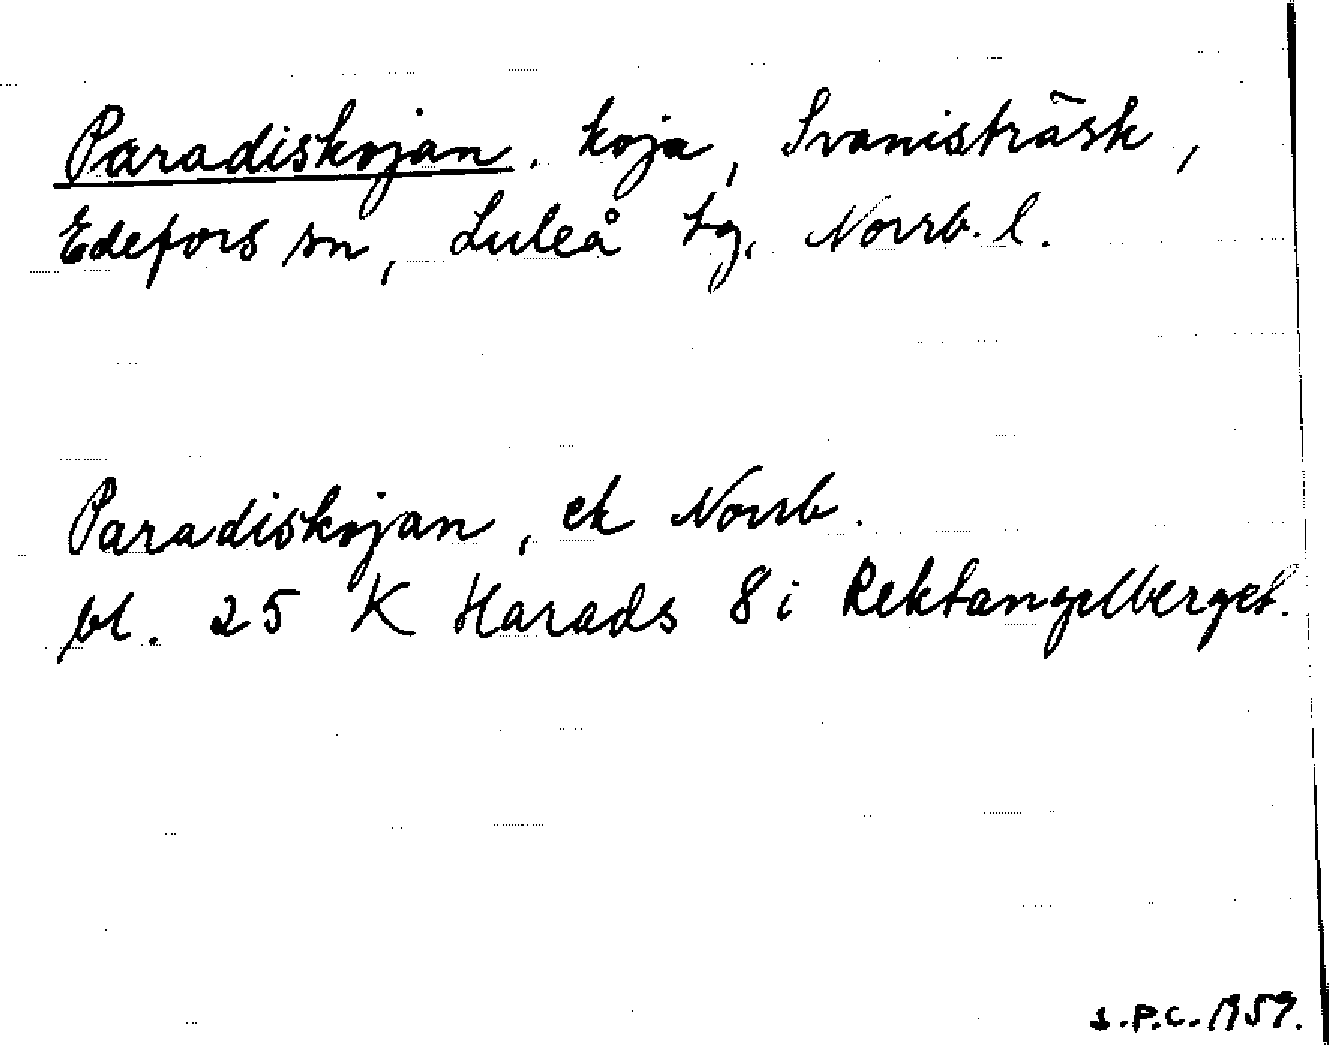 Paradiskojan. koja, Svanisträsk,
Edefors sn, Luleå tg, Norrb. l.
Paradiskojan, ek Norrb.
bl. 25 K Harads 8 i Rektangelberget.
S.P.C. 1959.